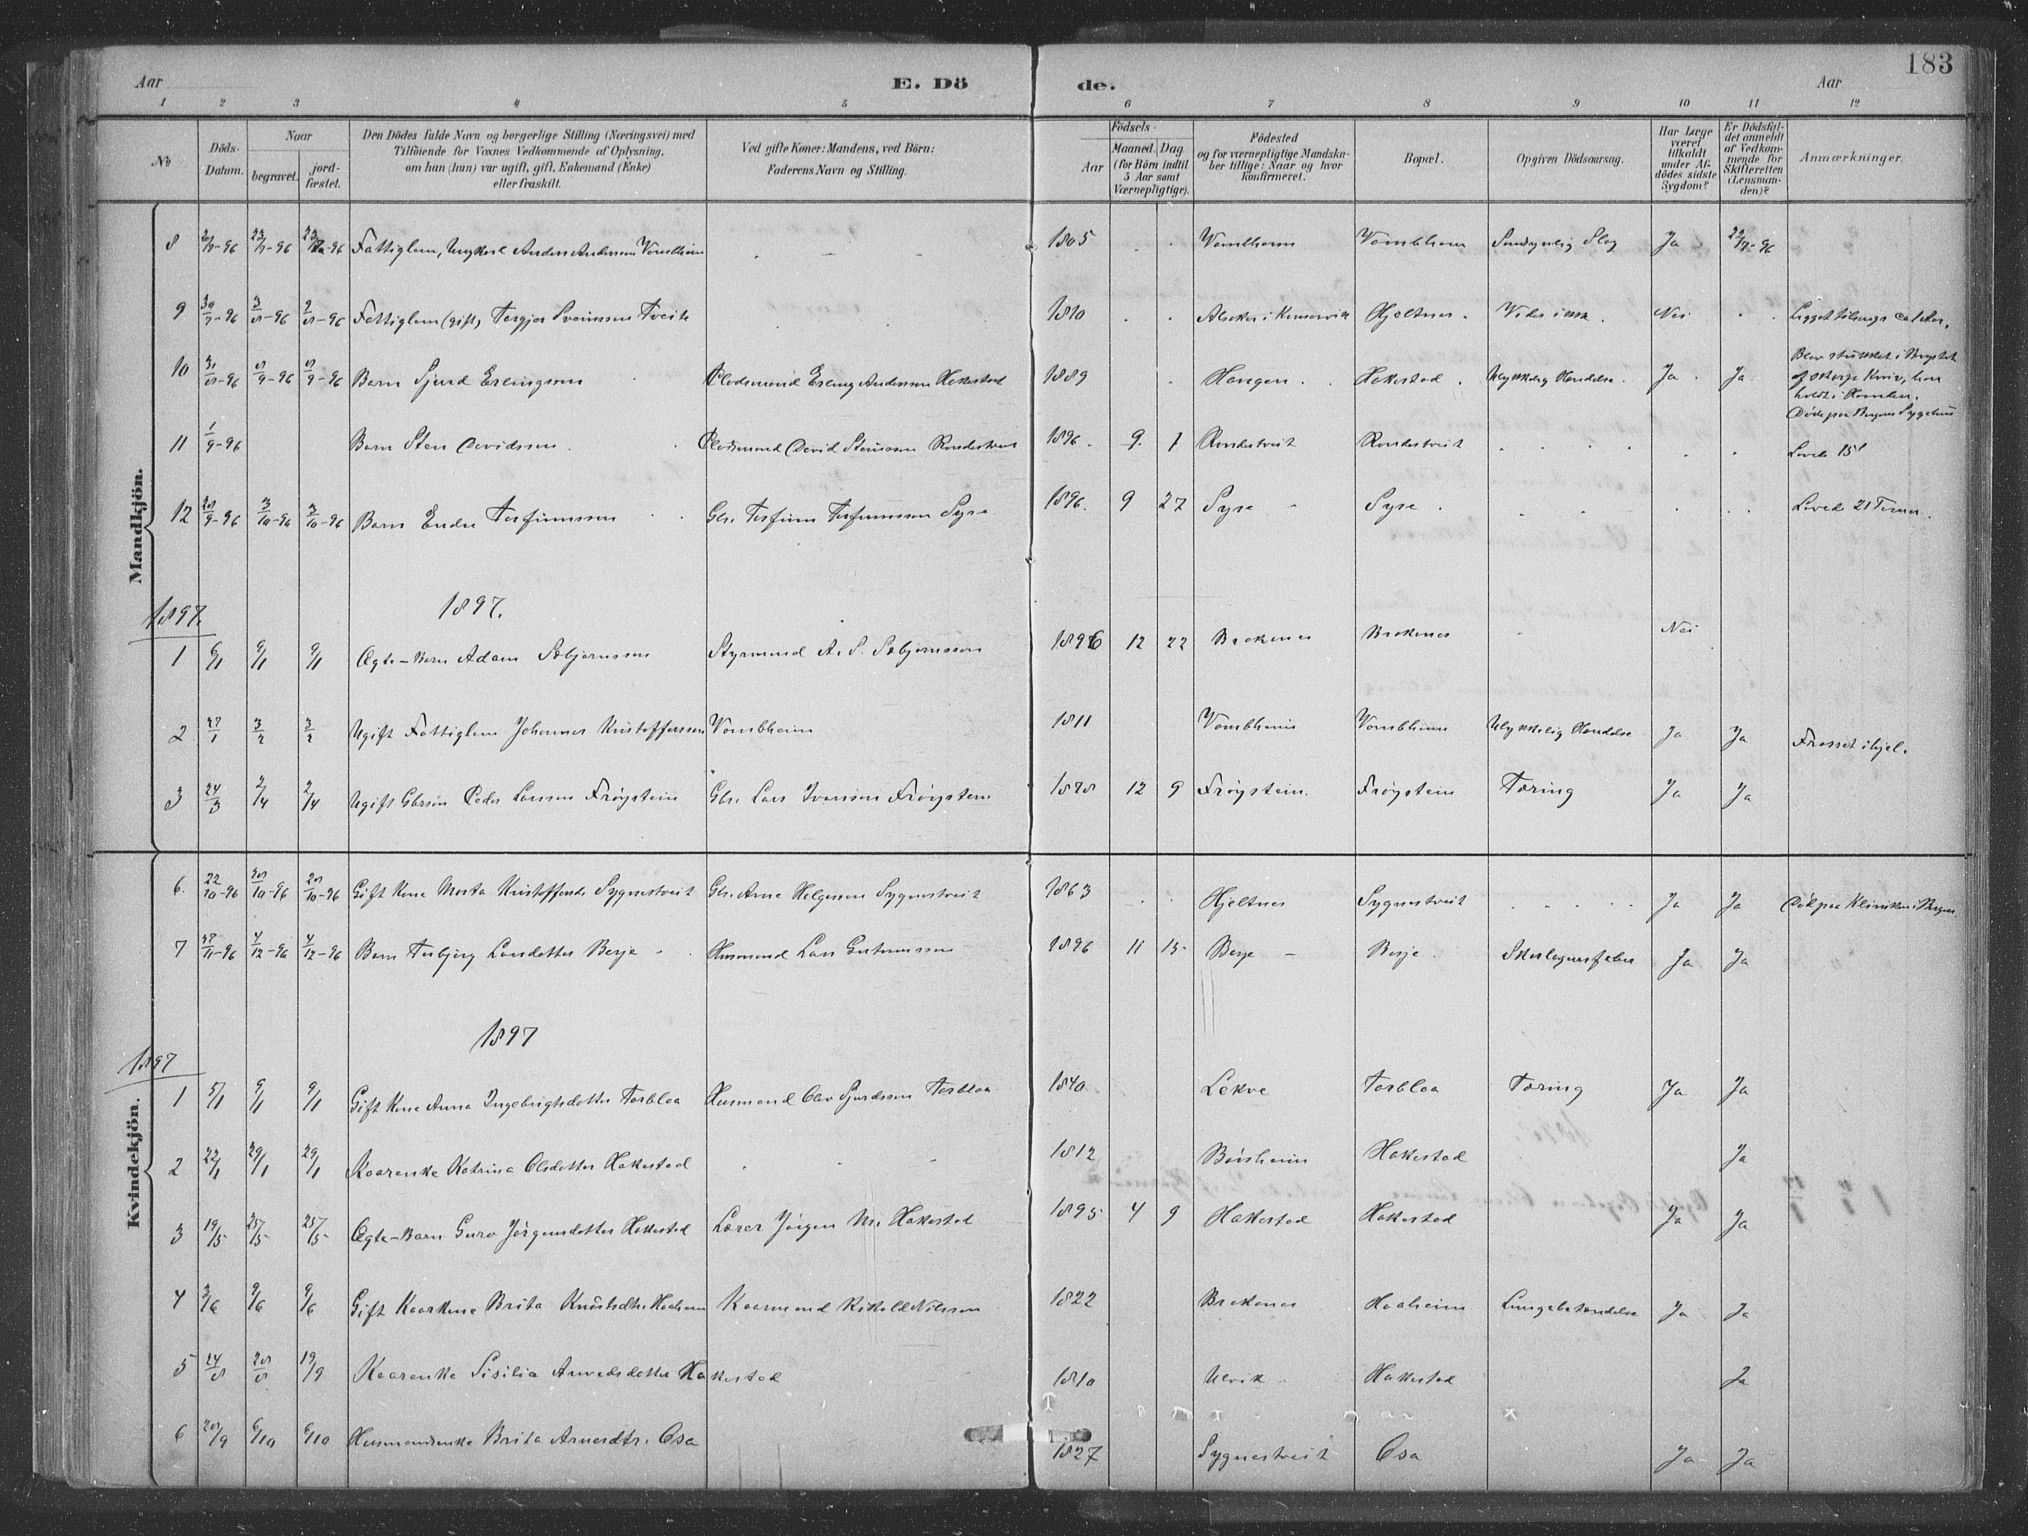 183
Aar E. Dö de. Aar
1 2 3 4 5 6 7 8 9 10 11 12
No
Döds-Datum.
Naar
begravet.
jord-fæstet.
Den Dödes fulde Navn og borgerlige Stilling (Næringsvei) med
Tilföiende for Voxnes Vedkommende af Oplysning,
om han (hun) var ugift, gift, Enkemand (Enke)
eller fraskilt.
Ved gifte Koner: Mandens, ved Börn:
Faderens Navn og Stilling.
Födsels-
Aar
Maaned. Dag
(for Börn indtil
5 Aar samt
Værnepligtige).
Födested
og for værnepligtige Mandska-
ber tillige: Naar og hvor
konfirmeret.
Bopæl.
Opgiven Dödsaarsag.
Har Læge
været
tilkaldt
under Af-
dödes sidste
Sygdom?
Er Dödsfal-
det anmeldt
af Vedkom-
mende for
Skifteretten
(Lensman-
den)?
Anmærkninger.
Mandkjön.
8 Fattiglem, Ungkarl Anders Andersen Vambheim 1805 Vambheim Vambheim Slag Ja 22/7-96
9 30/7-96 3/8-96 2/8-96 Fattiglem (gift) Torgjer Sveinssen Tveite 1810 Alsaker i Kinservik Hjeltnes Nei
10 31/8-96 8/9-96 8/9-96 Barn Sjurd Erlingssen Plodsmand Erling Anderssen Hakestad 1889 Haugen Hakestad Ulykkelig Hændelse Ja Ja Blev stukket i Brystet
af skarp Kniv, han
holdt i Haanden.
Døde paa Bergens Sygehus
11 1/9-96 Barn Sten Davidssen Plodsmand David Stenssen 1896 9 1 Levde 15'
12 28/9-96 3/10-96 3/10-96 Barn Endre Torfinnssen Gbr. Torfinn Torfinnssen Syse 1896 9 27 Syse Syse Leved 21 Timer.
1897. 1897.
1 6/1 9/1 9/1 Ægte-Barn Adam Sæbjørnssen Styrmand A. S. Sæbjørnssen 1896 12 22 Brakenes Brakenes Nei
2 27/1 3/2 3/2 Ugift Fattiglem Johannes Kristofferssen Vambheim 1811 Vambheim Vambheim Ulykkelig Hændelse Ja Ja Frosset ihjel.
3 24/3 2/4 2/4 Ugift Gbrsøn Peder Larssen Frøystein Gbr. Lars Ivarssen Frøystein 1878 12 9 Frøystein Frøystein Tæring Ja Ja
Kvindekjön.
6. 22/10-96 28/10-96 28/10-96 Gift Kone Marta Kristoffersdr Sygnestveit Gbr. Arne Helgessen Sygnestveit 1863 Hjeltnes Sygnestveit Ja Ja Død paa Kliniken i Bergen
7 27/11-96 4/12-96 4/12-96 Barn Torbjørg Larsdotter Berje Husmand Lars 1896 11 15 Berje Berje Skarlagensfeber Ja Ja
1897 1897
1 5/1 9/1 9/1 Gift Kone Anna Ingebrigtsdotter Torbloa Husmand Olav Sjurdssen Torbloa 1840 Lekve Torbloa Tæring Ja Ja
2 22/1 29/1 29/1 Kaarenke Katrina Olsdotter Hakestad 1812 Børsheim Hakestad Ja
3 19/5 25/5 25/5 Ægte-Barn Guro Jørgensdotter Hakestad Lærer Jørgen M. Hakestad 1895 4 9 Hakestad Hakestad Ja Ja
4 3/6 9/6 9/6 Gift Kaarkone Brita Knutsdtr Haaheim Kaarmand Rikold Nilssen 1822 Brakenes Haaheim Lungebetændelse Ja Ja
5 24/8 28/8 19/9 Kaarenke Sisilia Arnesdotter Hakestad 1810 Ulvik Hakestad Ja
6 28/9 6/10 6/10 Husmandsenke Brita Osa 1827 Sygnestveit Osa Ja Ja